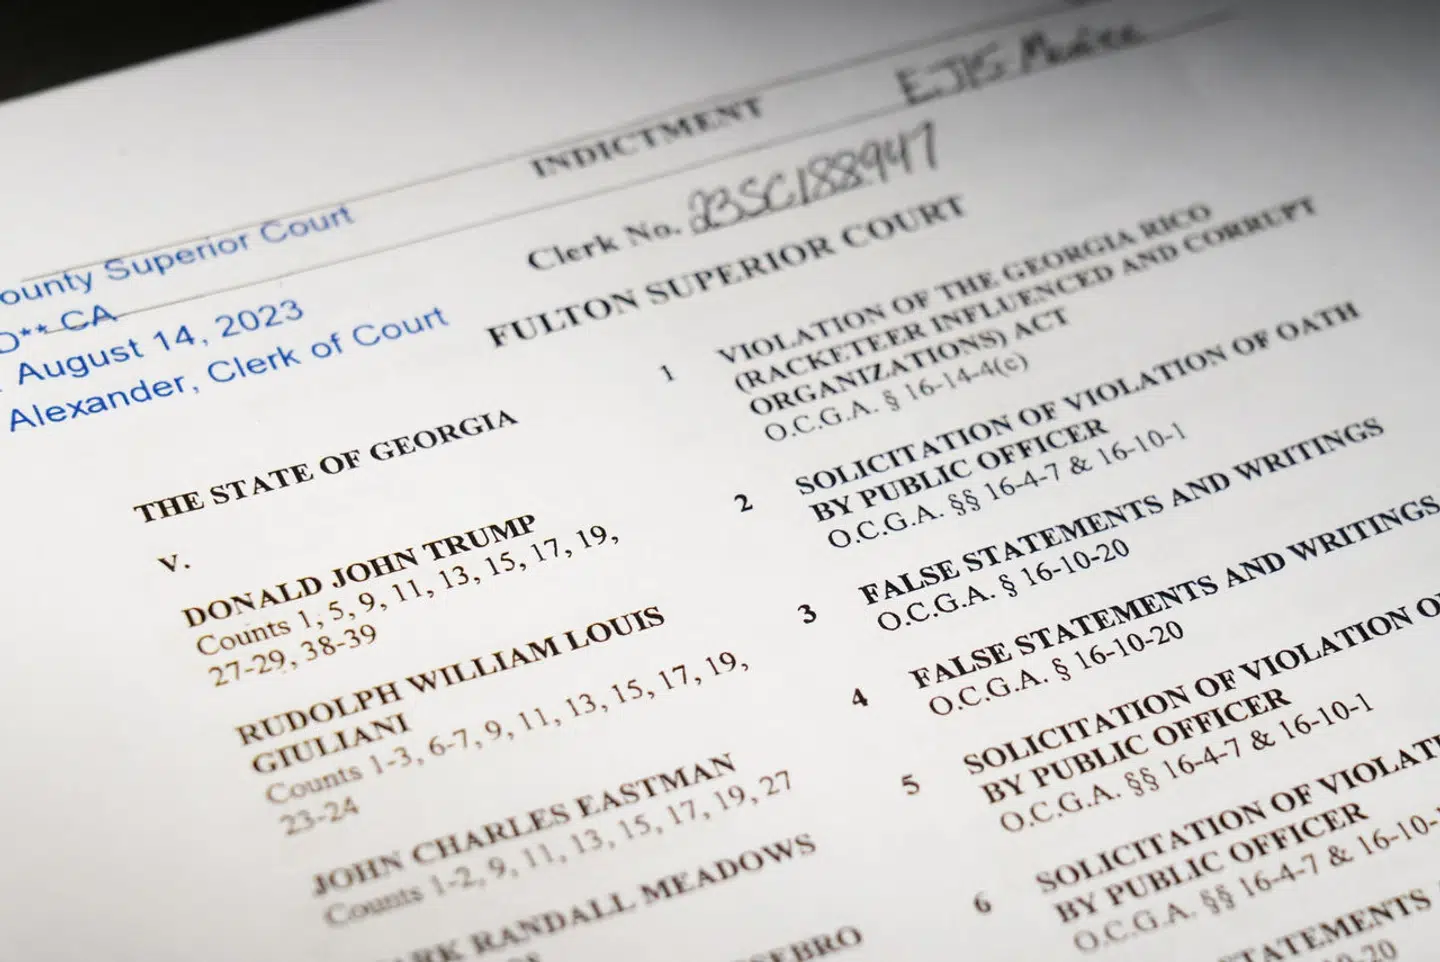 INDICTMENT
Clerk No. 23SC188947
FULTON SUPERIOR COURT
ounty Superior Court
D** CA
August 14, 2023
Alexander, Clerk of Court
THE STATE OF GEORGIA
v.
DONALD JOHN TRUMP
Counts 1, 5, 9, 11, 13, 15, 17, 19,
27-29, 38-39
RUDOLPH WILLIAM LOUIS
GIULIANI
Counts 1-3, 6-7, 9, 11, 13, 15, 17, 19,
23-24
JOHN CHARLES EASTMAN
Counts 1-2, 9, 11, 13, 15, 17, 19, 27
RK RANDALL MEADOWS
SEBRO
1 VIOLATION OF THE GEORGIA RICO
(RACKETEER INFLUENCED AND CORRUPT
ORGANIZATIONS) ACT
O.C.G.A. § 16-14-4(c)
2 SOLICITATION OF VIOLATION OF OATH
BY PUBLIC OFFICER
O.C.G.A. §§ 16-4-7 & 16-10-1
3 FALSE STATEMENTS AND WRITINGS
O.C.G.A. § 16-10-20
4 FALSE STATEMENTS AND WRITINGS
O.C.G.A. § 16-10-20
5 SOLICITATION OF VIOLATION O
BY PUBLIC OFFICER
O.C.G.A. §§ 16-4-7 & 16-10-1
6 SOLICITATION OF VIOLATI
BY PUBLIC OFFICER
O.C.G.A. §§ 16-4-7 & 16-10-
STATEMENTS
0-20